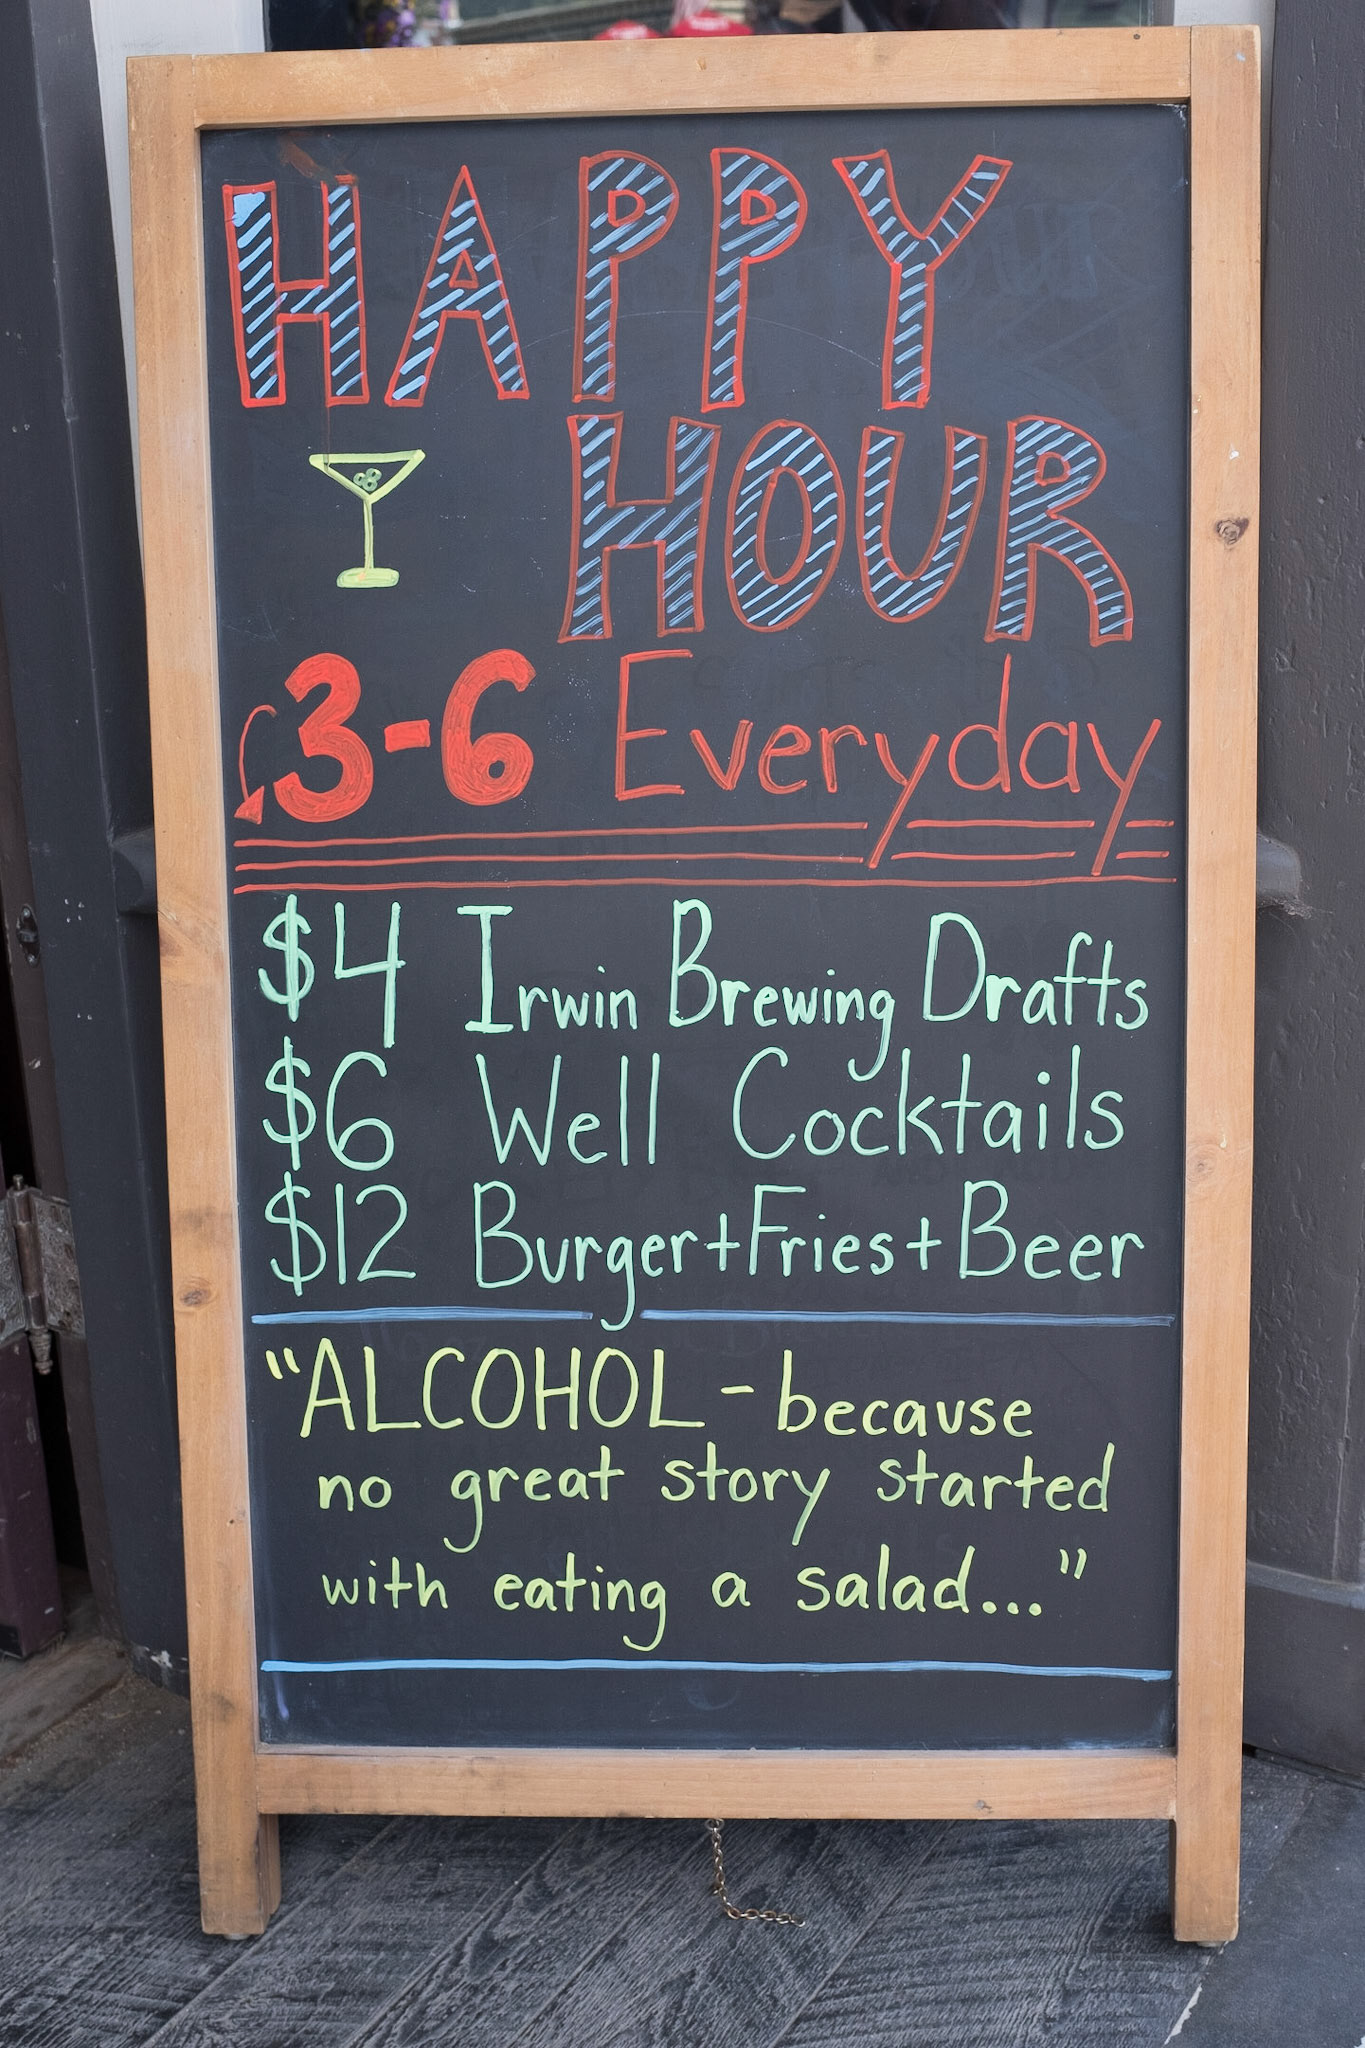 HAPPY
HOUR
3-6 Everyday
$4 Irwin Brewing Drafts
$6 Well Cocktails
$12 Burger+Fries+Beer
"ALCOHOL - because
no great story started
with eating a salad..."